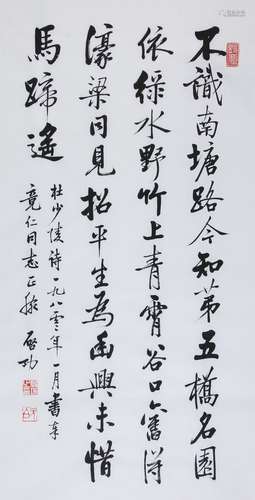 不識南塘路今知第五橋名園
依綠水野竹上青霄谷口舊得
濠梁同見招平生為幽興未惜
馬蹄遙
杜少陵詩一九八〇年一月書奉
竟仁同志正腕 啓功